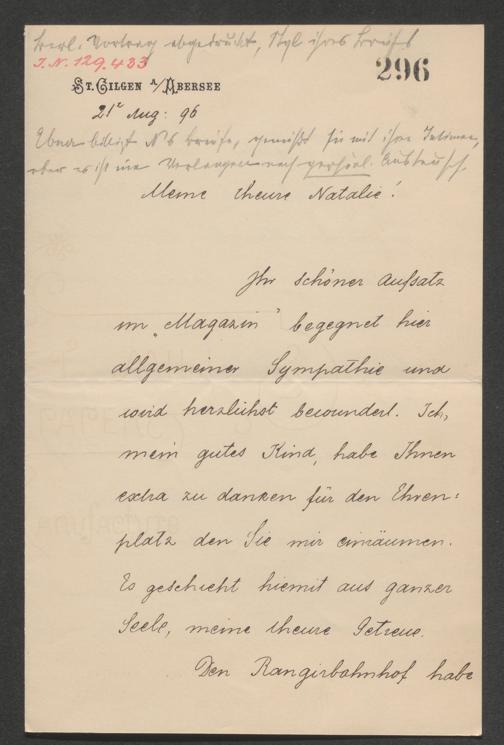 Berl. Vortrag abgedruckt, Styl ihres Briefs
I.N. 129.433
296
ST. GILGEN A/ABERSEE
21t Aug: 96
Ebner N's Briefe, sie mit
aber es ist ein Verlangen nach persönl. Austausch.
Meine theure Natalie!
Ihr schöner Aufsatz
im „Magazin" begegnet hier
allgemeiner Sympathie und
wird herzlichst bewundert. Ich,
mein gutes Kind, habe Ihnen
extra zu danken für den Ehren=
platz den Sie mir einräumen.
Es geschieht hiemit aus ganzer
Seele, meine theure Getreue.
Den Rangirbahnhof habe